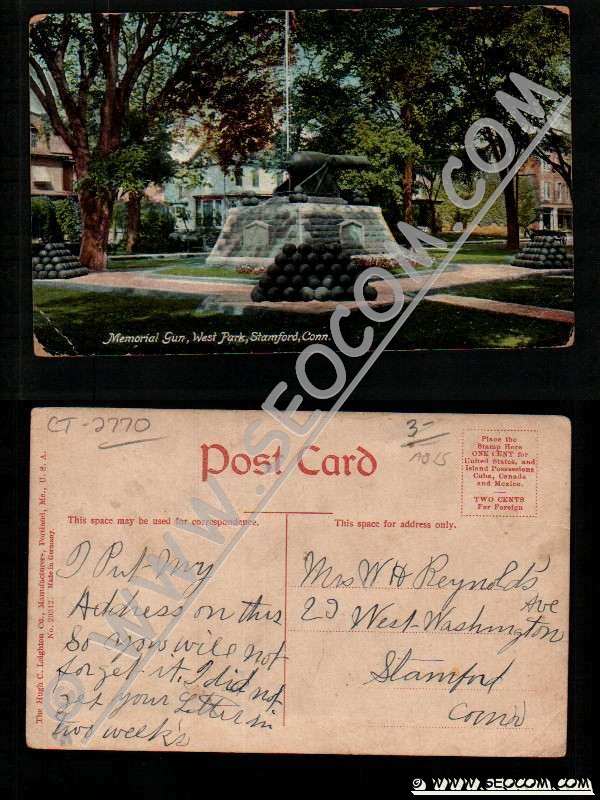 Memorial Gun, West Park, Stamford, Conn.
WWW.SEOCOM.COM
CT-2770
3-
Post Card
Place the
Stamp Here
ONE CENT for
United States, and
Island Possessions
Cuba, Canada
and Mexico.
TWO CENTS
For Foreign
The Hugh C. Leighton Co., Manufacturers, Portland, Me., U. S. A.
No. 29312 Made in Germany.
This space may be used for correspondence.
This space for address only.
I Put My
Address on this
So you will not
forget it. I did not
get your Letter in
two week's
Mrs W H Reynolds
23 West Washington Ave
Stamford
Conn
© WWW.SEOCOM.COM